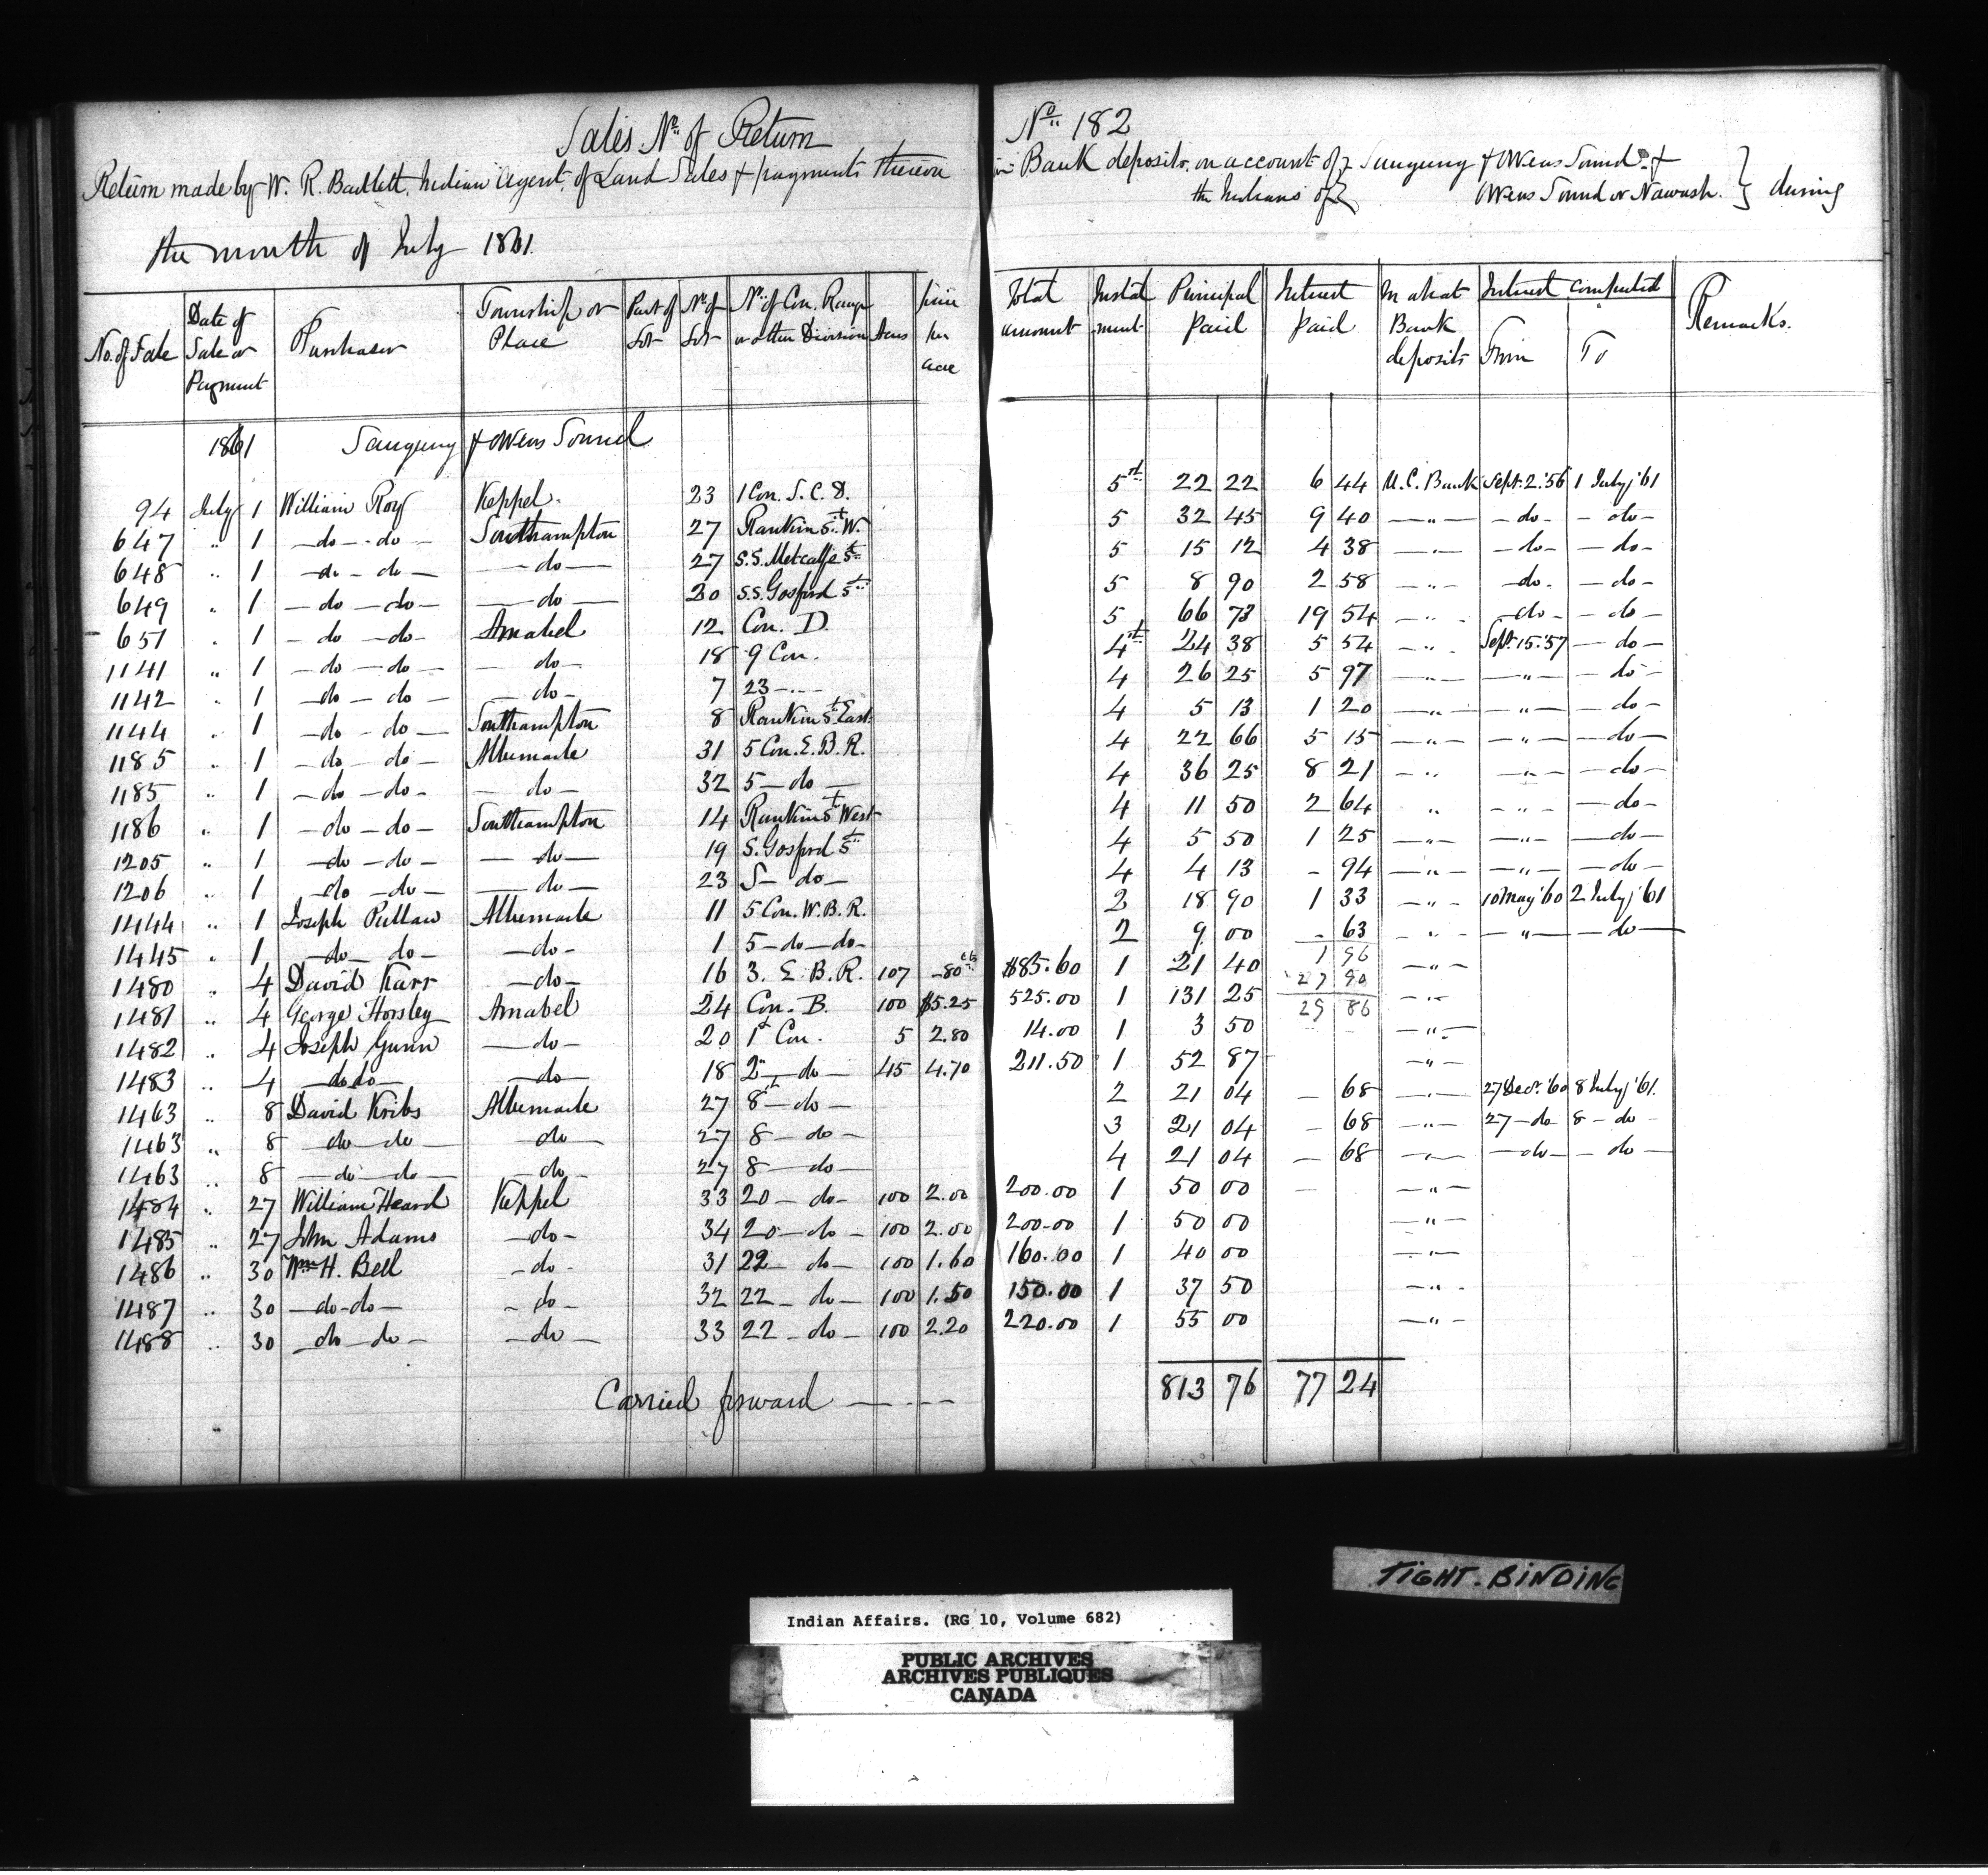 Sales No. of Return No. 182
Return made by W. R. Bartlett, Indian Agent, of Land Sales & payments thereon in Bank deposits, on account of the Indians of } Saugeeng & Owens Sound & Owens Sound or Nawash. } during
the month of July 1861.
No. of Sale | Date of Sale or Payment | Purchaser | Township or Place | Part of Lot | No. of Lot | No. of Con. Range or other Division | Acres | price per acre | Total amount | Instalment | Principal Paid | Interest Paid | In what Bank deposits | Interest computed From | To | Remarks.
1861 Saugeeng & Owens Sound
94 July 1 William Roy Keppel. 23 1 Con. S. C. D. 5th 22 22 6 44 U.C. Bank Sept. 2. '56 1 July, '61
647 " 1 —do—do— Southampton 27 Rankin St. W. 5 32 45 9 40 —"— —do— —do—
648 " 1 —do—do— —do— 27 S.S. Metcalfe St. 5 15 12 4 38 —"— —do— —do—
649 " 1 —do—do— —do— 20 S.S. Gosford St. 5 8 90 2 58 —"— —do— —do—
651 " 1 —do—do— Amabel 12 Con. D. 5 66 73 19 54 —"— —do— —do—
1141 " 1 —do—do— —do— 18 9 Con. 4th 24 38 5 54 —"— Sept. 15. '57 —do—
1142 " 1 —do—do— —do— 7 23 —"— 4 26 25 5 97 —"— —"— —do—
1144 " 1 —do—do— Southampton 8 Rankin St. East 4 5 13 1 20 —"— —"— —do—
1185 " 1 —do—do— Albemarle 31 5 Con. E. B. R. 4 22 66 5 15 —"— —"— —do—
1185 " 1 —do—do— —do— 32 5—do— 4 36 25 8 21 —"— —"— —do—
1186 " 1 —do—do— Southampton 14 Rankin St. West 4 11 50 2 64 " —"— —do—
1205 " 1 —do—do— —do— 19 S. Gosford St. 4 5 50 1 25 —"— —"— —do—
1206 " 1 —do—do— —do— 23 S—do— 4 4 13 - 94 —"— —"— —do—
1444 " 1 Joseph Pullaw Albemarle 11 5 Con. W. B. R. 2 18 90 1 33 —"— 10 May '60 2 July, '61
1445 " 1 —do—do— —do— 1 5—do—do— 2 9 00 - 63 —"— —"— —do—
1480 " 4 David Karr —do— 16 3. E. B. R. 107 -80 cts. $85.60 1 21 40 1 96 —"—
1481 " 4 George Horsley Amabel 24 Con. B. 100 $5.25 525.00 1 131 25 27 90 —"—
29 86
1482 " 4 Joseph Gunn —do— 20 1st Con. 5 2.80 14.00 1 3 50 —"—
1483 " 4 —do do— —do— 18 2—do— 45 4.70 211.50 1 52 87 —"—
1463 " 8 David Kribs Albemarle 27 8th—do— 2 21 04 — 68 —"— 27 Decr. '60 8 July, '61.
1463 " 8 —do—do— —do— 27 8—do— 3 21 04 - 68 —"— 27—do 8—do—
1463 " 8 —do—do— —do— 27 8—do— 4 21 04 — 68 —"— —do— —do—
1484 " 27 William Heard Keppel 33 20—do— 100 2.00 200.00 1 50 00 — —"—
1485 " 27 John Adams —do— 34 20—do— 100 2.00 200.00 1 50 00 —"—
1486 " 30 Wm. H. Bell —do— 31 22—do— 100 1.60 160.00 1 40 00 —"—
1487 " 30 —do-do— —do— 32 22—do— 100 1.50 150.00 1 37 50 —"—
1488 " 30 —do—do— —do— 33 22—do— 100 2.20 220.00 1 55 00 —"—
Carried forward — — — 813 76 77 24
TIGHT. BINDING
Indian Affairs. (RG 10, Volume 682)
PUBLIC ARCHIVES
ARCHIVES PUBLIQUES
CANADA